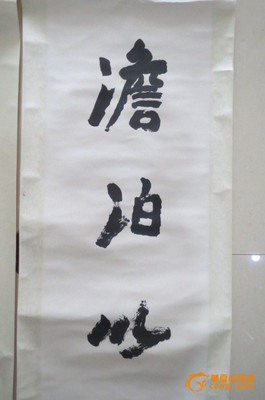 澹泊以